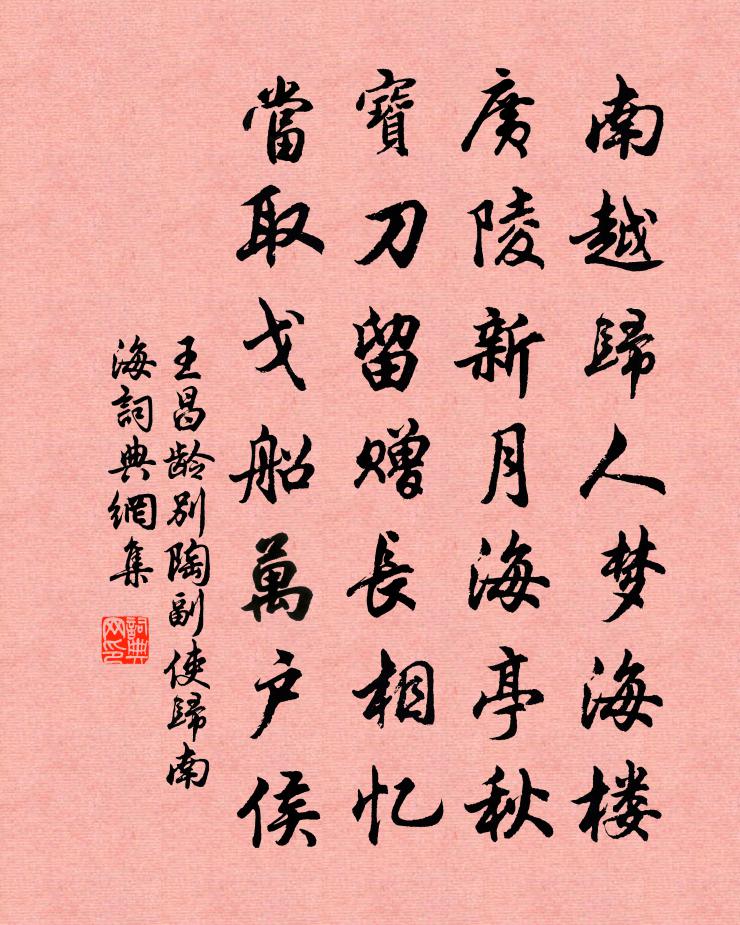 南越歸人梦海楼
廣陵新月海亭秋
寶刀留赠長相忆
當取戈船萬户侯
王昌龄别陶副使歸南
海詞典網集
詞典网印